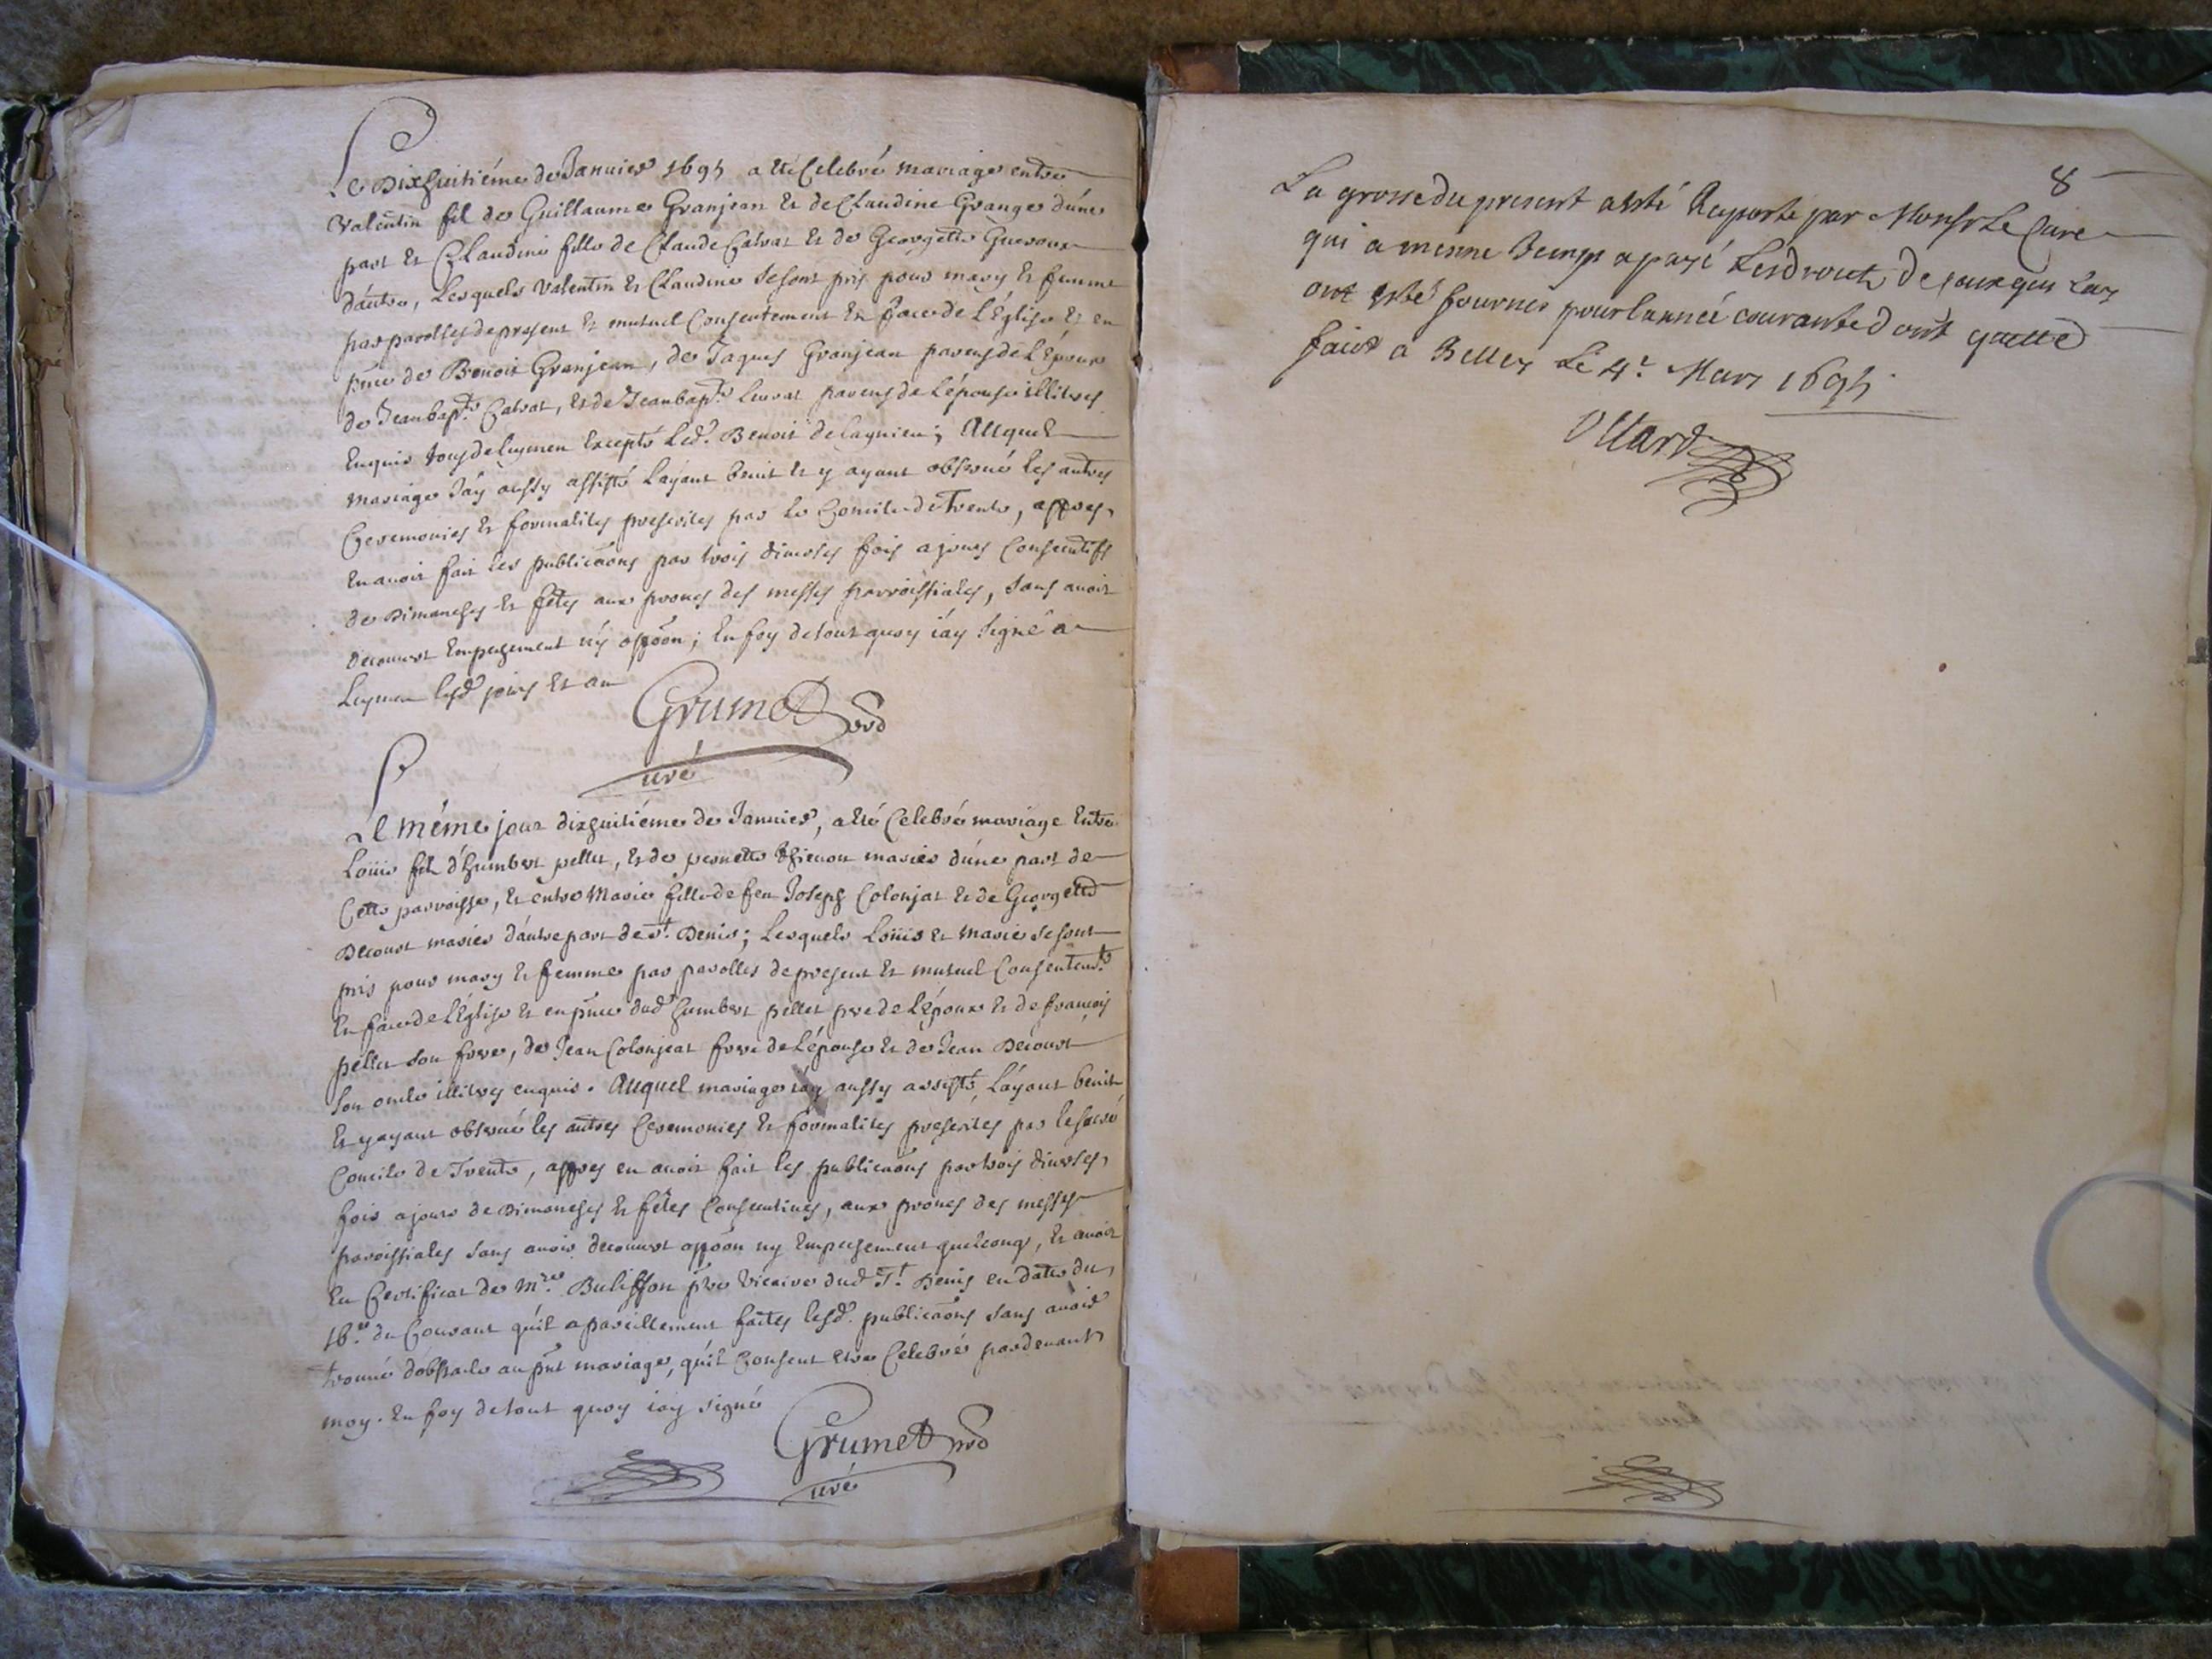 Le Dixhuitiéme de Januier 1695 a été Celebré mariage entre
Valentin fil de Guillaume Granjean et de Claudine Grange d'une
part et Claudine fille de Claude Calvat et de Georgette
d'autre, Lesquels Valentin et Claudine se sont pris pour mary et femme
par parolles de present et mutuel Consentement En face de L'Église et en
pnce de Benoit Granjean, de Jaques Granjean parens de L'époux
de Jean bapte Calvat, et de Jean bapte parens de L'épouse illitres
Enquis tous de Leymen Excepté Led. Benoit de Lagnieu; Auquel
mariage J'ay aussy assisté L'ayant benit et y ayant obserué les autres
Ceremonies et formalités prescrites par le Concile de Trente, appres
En auoir fait les publicaons par trois diuerses fois a jours Consecutifs
de Dimanches et fêtes aux prones des messes parroissiales, sans auoir
decouuert Empechement ny oppôon; En foy de tout quoy i'ay signé a
Leymen lesd jours et an
Grumet
curé
Le même jour dixhuitiéme de Januier, a été Celebré mariage Entre
Loüis fils d'humbert pellet, et de pernette Thienon mariés d'une part de
Cette parroisse, et entre Marie fille de feu Joseph Colonjat et de Georgette
Decourt mariés d'autre part de St. Denis; Lesquels Loüis et Marie se sont
pris pour mary et femme par parolles de present et mutuel Consentemt
En face de L'Église et en pnce dud humbert pellet pre de L'époux et de françois
pellet son frere, de Jean Colonjeat frere de L'épouse et de Jean Decourt
son oncle illitres enquis. Auquel mariage i'ay aussy assisté, L'ayant benit
Et y ayant obserué les autres Ceremonies et formalités prescrites par le sacré
Concile de Trente, appres en auoir fait les publicaons par trois diuerses
fois a jours de Dimanches et fêtes Consecutiues, aux prones des messes
paroissiales sans auoir decouuert oppôon ny Empechement quelconq, et auoir
Eu Certificat de Mre Buliffon pbre Vicaire dud St. Denis en date du
16e du Courant qu'il a pareillement faites lesd. publicaons sans auoir
trouué d'obstacle au pnt mariage, qu'il Consent etre Celebré pardeuant
moy. En foy de tout quoy i'ay signé
Grumet
curé
8
La grosse du present a esté Raporté par Monsr Le Cure
qui a mesme temps a payé Les droits de ceux qui Luy
ont esté fournis pour l'année courante dont quitte
faict a Belley Le 4e Mars 1695
Ollard